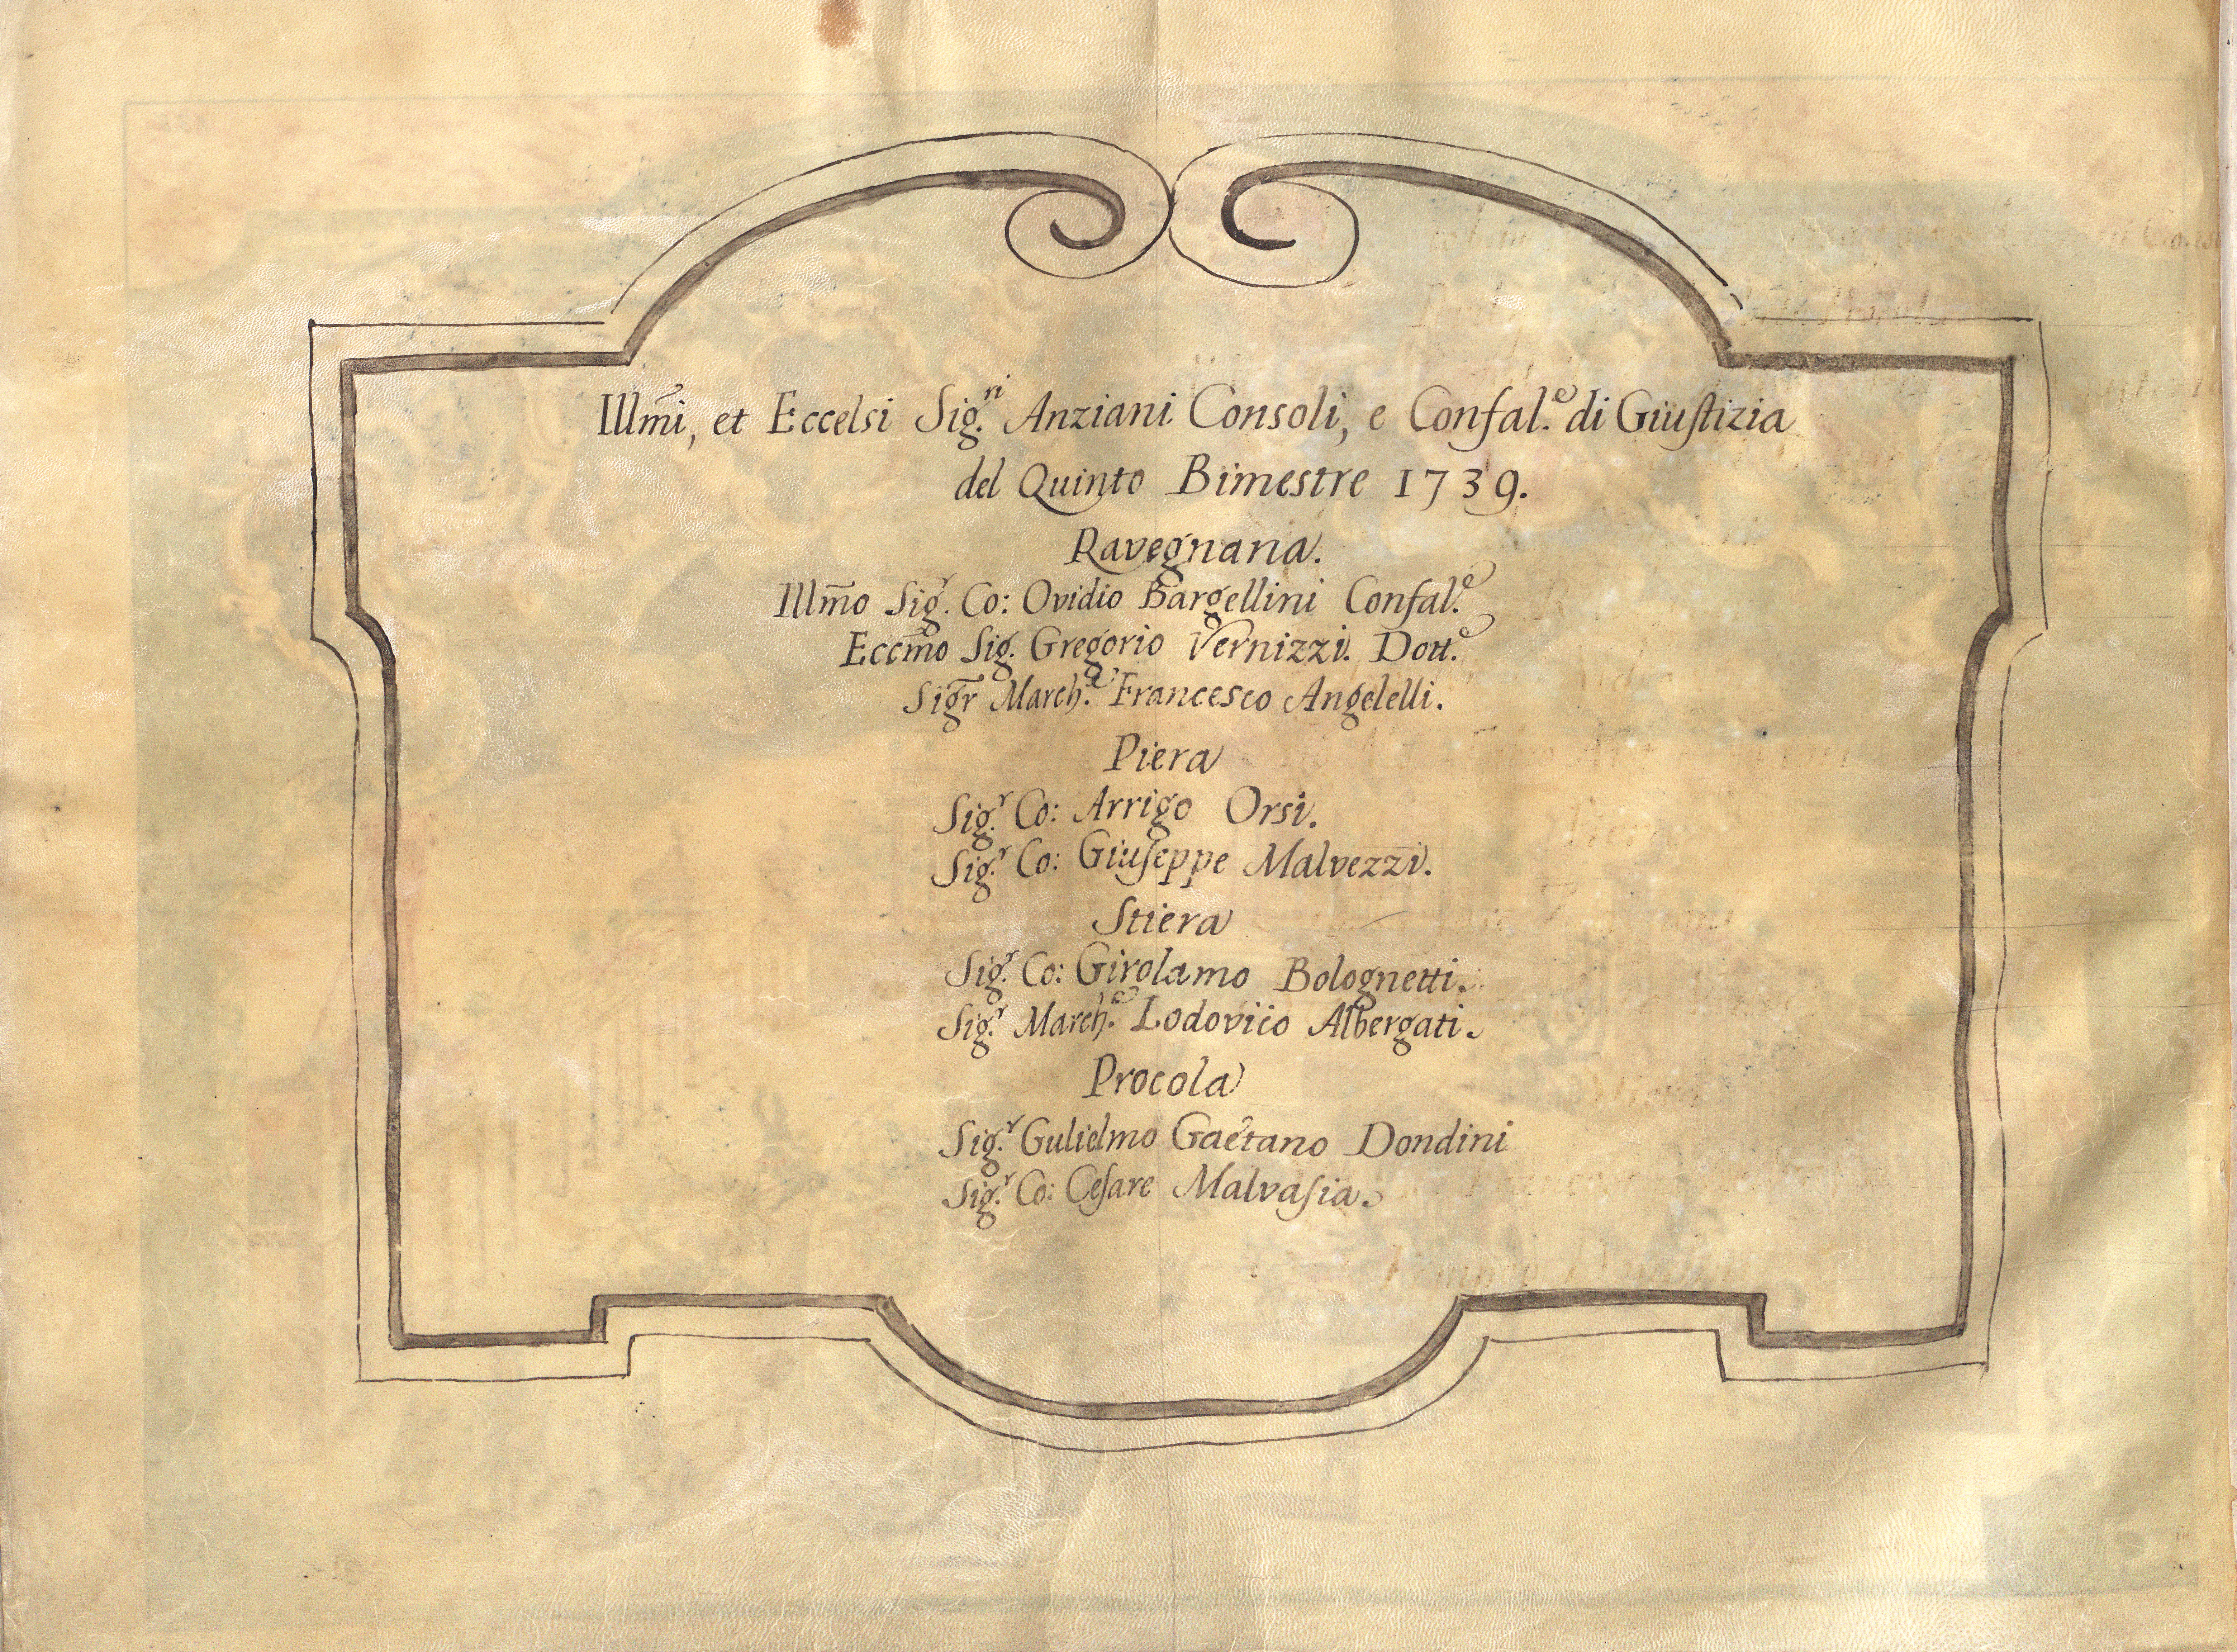 Illm̃i, et Eccelsi Sig.ri Anziani Consoli, e Confal.e di Giuſtizia
del Quinto Bimestre 1739.
Ravegnana.
Illm̃o Sig.r Co: Ovidio Bargellini Confal.e
Eccm̃o Sig. Gregorio Vernizzi. Dott.e
Sigr̃ March.e Francesco Angelelli.
Piera
Sig.r Co: Arrigo Orsi.
Sig.r Co: Giuſeppe Malvezzi.
Stiera
Sig.r Co: Girolamo Bolognetti.
Sig.r March.e Lodovico Albergati.
Procola
Sig.r Gulielmo Gaetano Dondini
Sig.r Co: Ceſare Malvaſia.